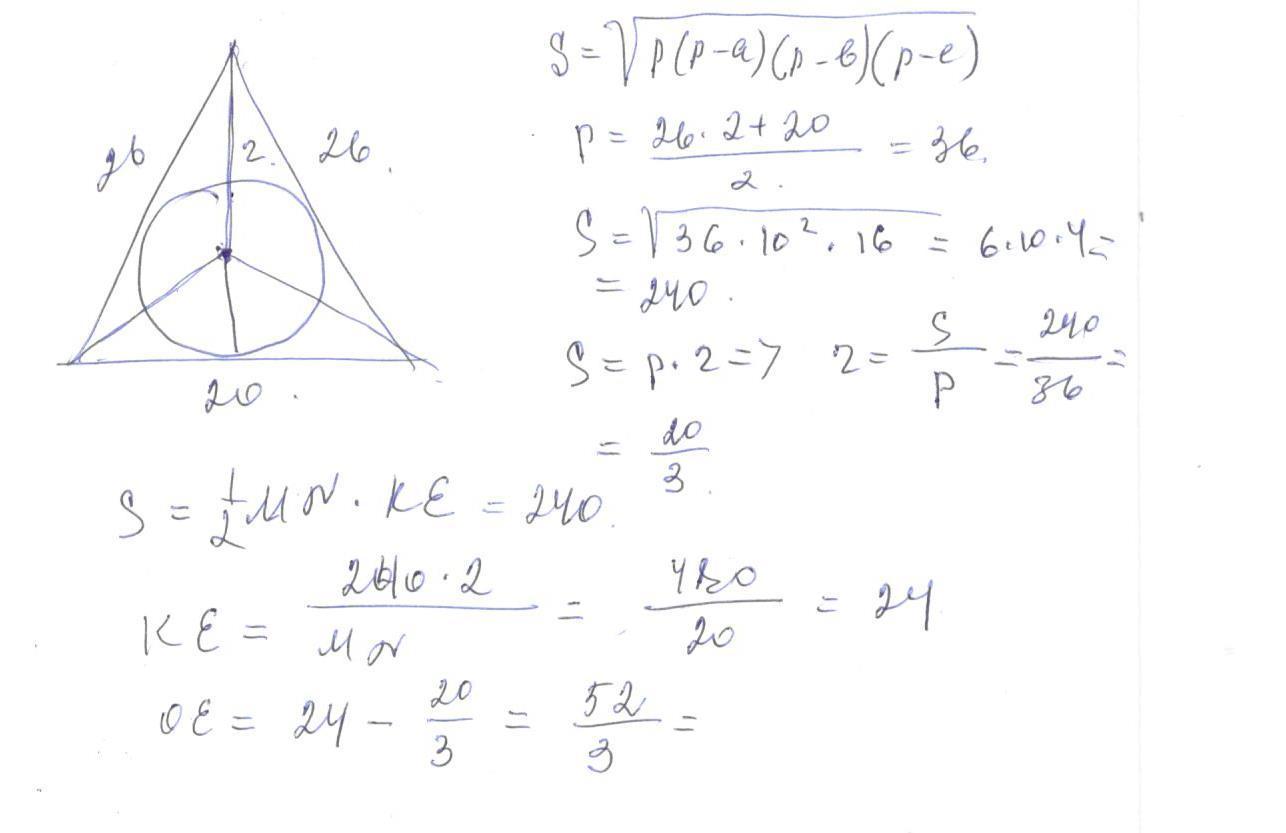 26 2. 26.
20.
S = √p(p-a)(p-b)(p-c)
p = (26·2+20)/2. = 36.
S = √36·10²·16 = 6·10·4 =
= 240.
S = p·r => r = S/p = 240/36 =
= 20/3.
S = 1/2 MN · KE = 240.
KE = 240·2/MN = 480/20 = 24
OE = 24 - 20/3 = 52/3 =